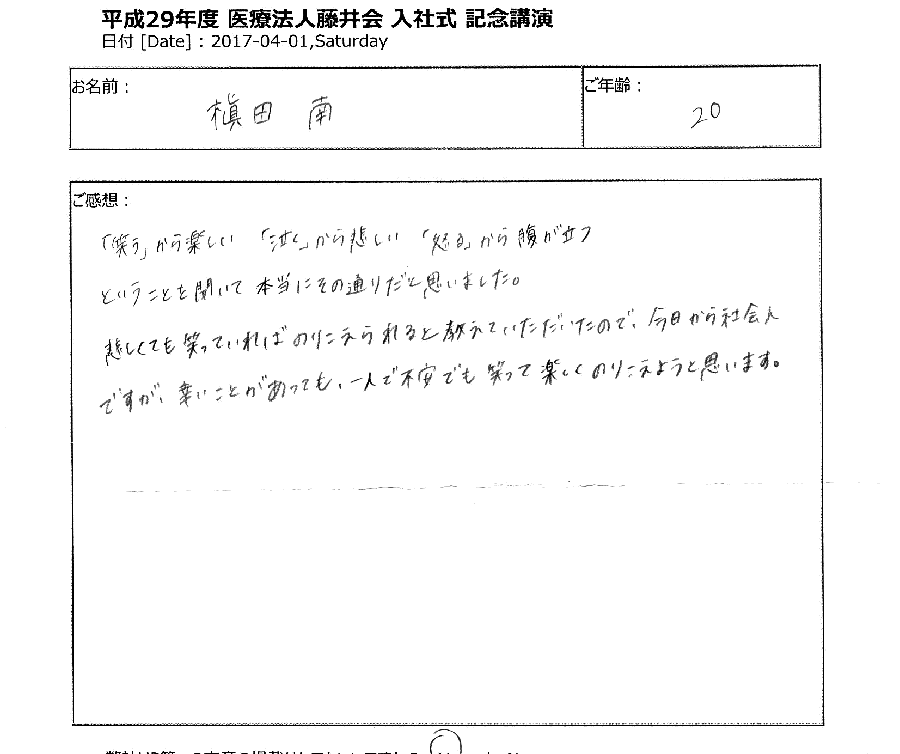 平成29年度 医療法人藤井会 入社式 記念講演
日付 [Date] : 2017-04-01,Saturday
お名前：
槇田 南
ご年齢：
20
ご感想：
「笑う」から楽しい 「泣く」から悲しい 「怒る」から腹が立つ
ということを聞いて 本当にその通りだと思いました。
悲しくても笑っていればのりこえられると教えていただいたので、今日から社会人
ですが、辛いことがあっても、一人で不安でも 笑って楽しくのりこえようと思います。